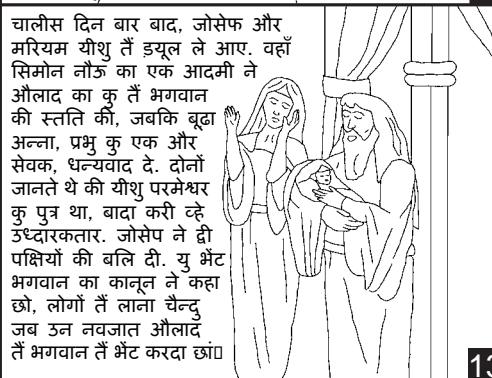 चालीस दिन बार बाद, जोसेफ और
मरियम यीशु तैं ड़यूल ले आए. वहाँ
सिमोन नौऊ का एक आदमी ने
औलाद का कु तैं भगवान
की स्तति की, जबकि बूढा
अन्ना, प्रभु कु एक और
सेवक, धन्यवाद दे. दोनों
जानते थे की यीशु परमेश्वर
कु पुत्र था, बादा करी व्हे
उध्दारकतार. जोसेप ने द्वी
पक्षियों की बलि दी. यु भेंट
भगवान का कानून ने कहा
छो, लोगों तैं लाना चैन्दु
जब उन नवजात औलाद
तैं भगवान तैं भेंट करदा छां